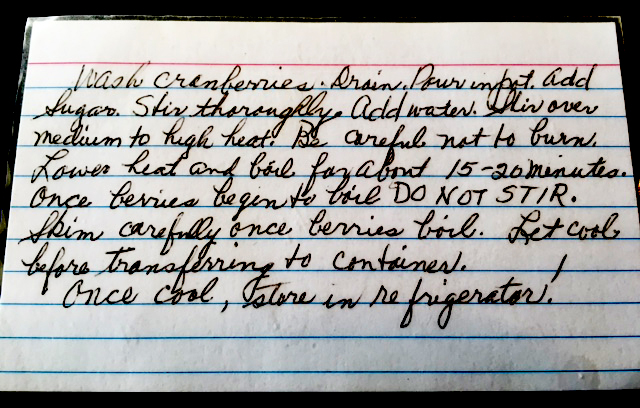 Wash cranberries. Drain. Pour in pot. Add
Sugar. Stir thoroughly. Add water. Stir over
medium to high heat. Be careful not to burn.
Lower heat and boil for about 15-20 minutes.
Once berries begin to boil DO NOT STIR.
Skim carefully once berries boil. Let cool
before transferring to container.
Once cool, store in refrigerator!